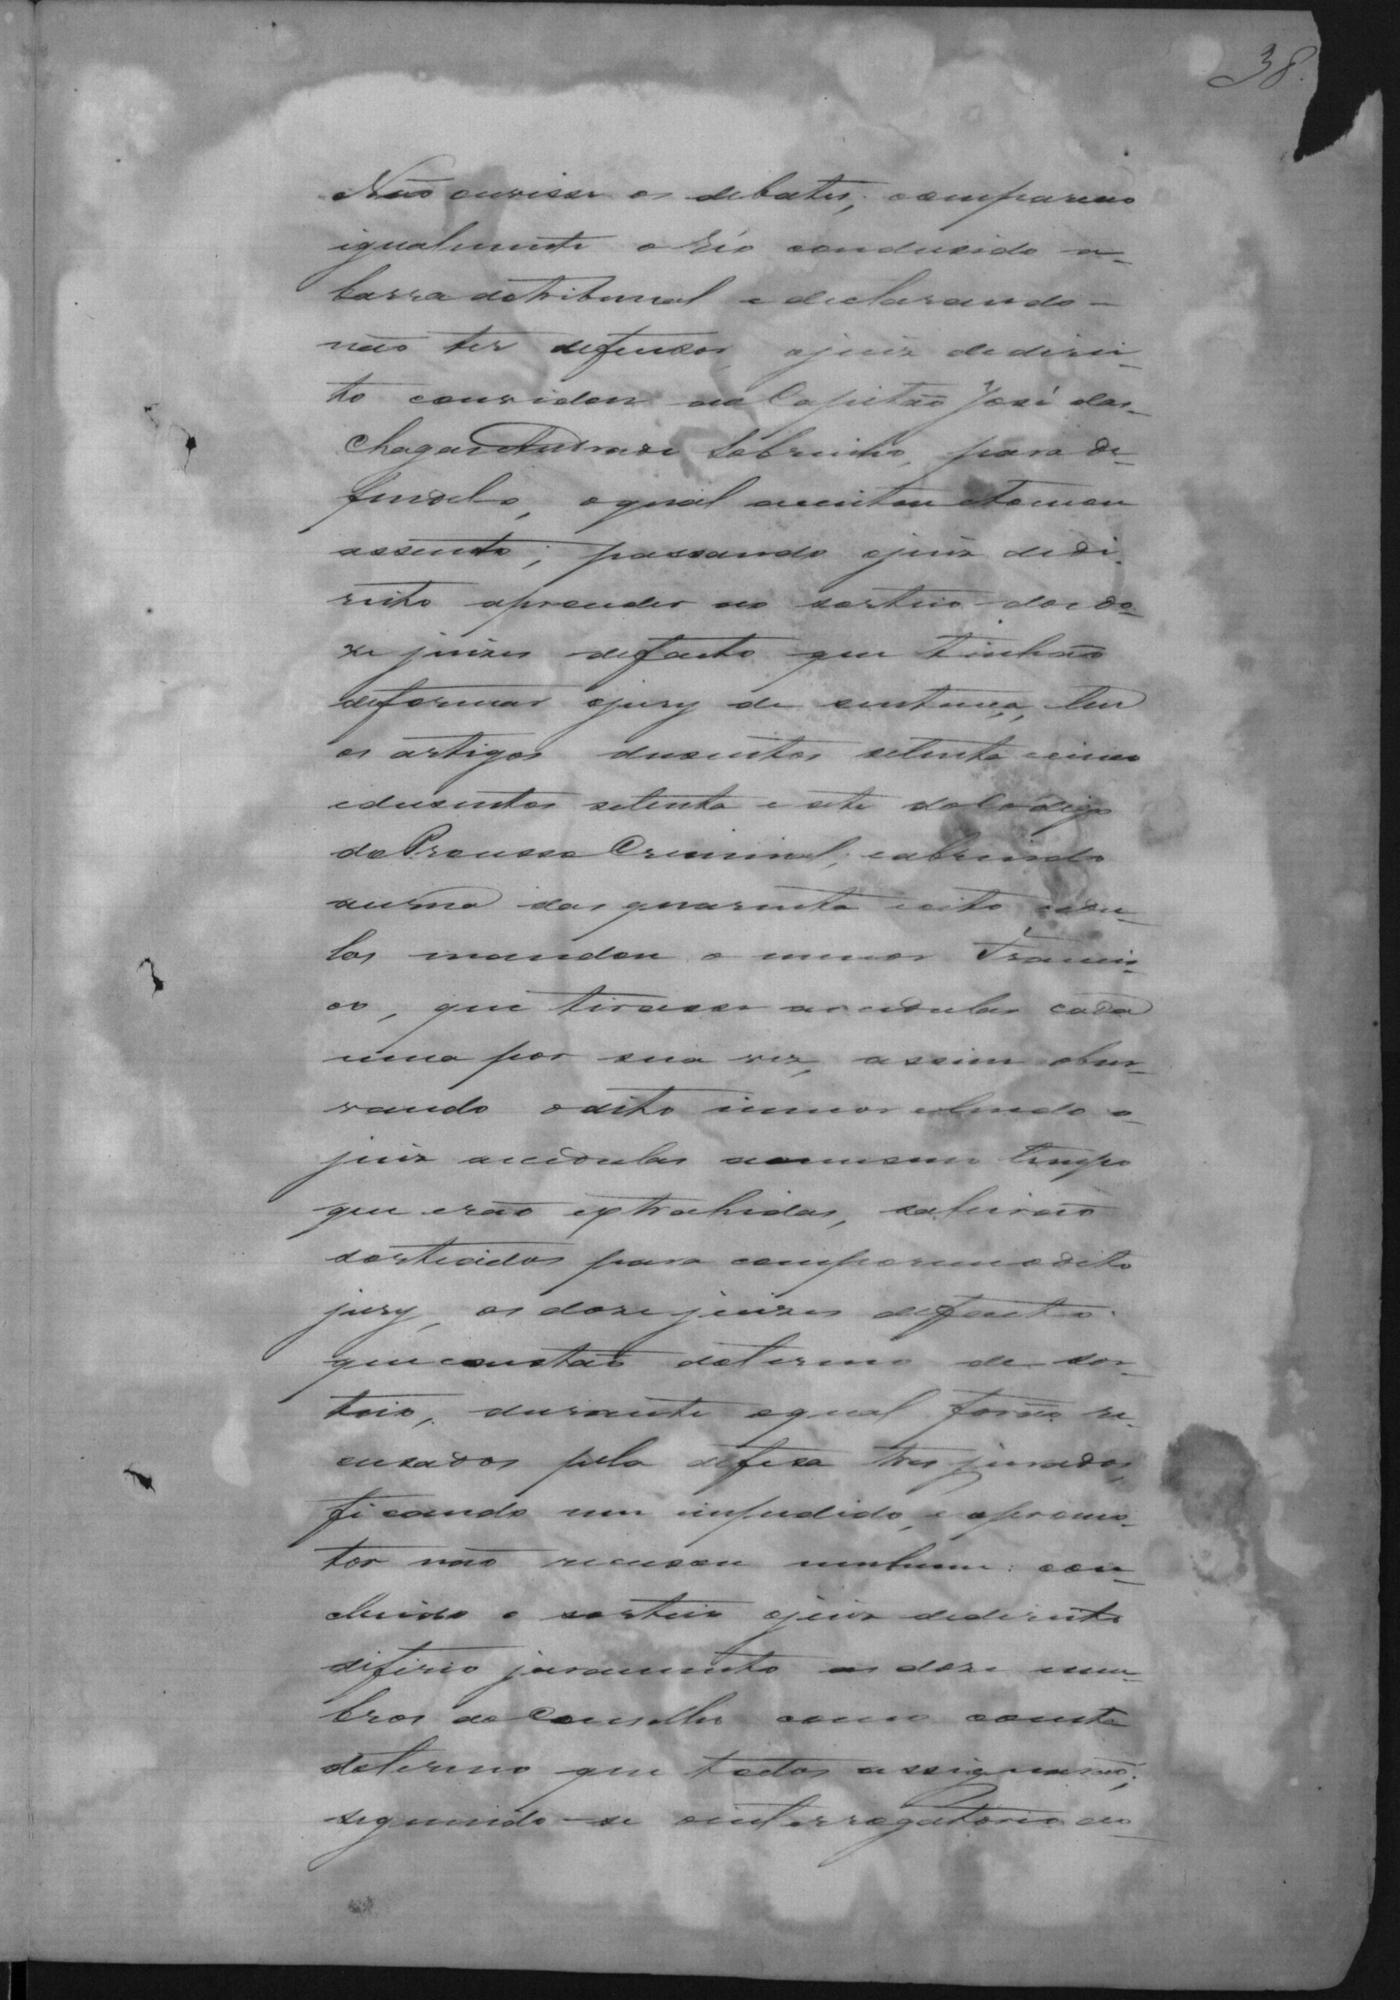 38.
Não ouvisse os debates; compareceo
igualmente o réo condusido a
barra do tribunal e declarando
não ter defensor, o juiz de direi-
to convidou ao Capitão José das
Chagas Andrade Sobrinho, para de-
fendelo, o qual aceitou e tomou
assento; passando o juiz de di-
reito a proceder ao sorteio dos do-
ze juizes de facto que tinhão
de formar o jury de sentença, leu
os artigos dusentos setenta e cinco
e dusentos setenta e sete do Codigo
do Processo Criminal; e abrindo
a urna das quarenta e oito cedu-
las mandou o menor Francis-
co, que tirasse as cedulas cada
uma por sua vez, e assim obser-
vando o dito menor e lendo o
juiz as cedulas ao mesmo tempo
que erão extrahidas, sahirão
sorteados para comporem o dito
jury, os doze juizes de facto
que constão do termo de sor-
teio, durante o qual forão re-
cusados pela defesa tres jurados,
ficando um impedido, e o promo-
tor não recusou nenhum: con-
cluido o sorteio o juiz de direito
diferio juramento aos doze mem-
bros do Conselho como consta
do termo que todos assignarão;
seguindo-se o interrogatorio do